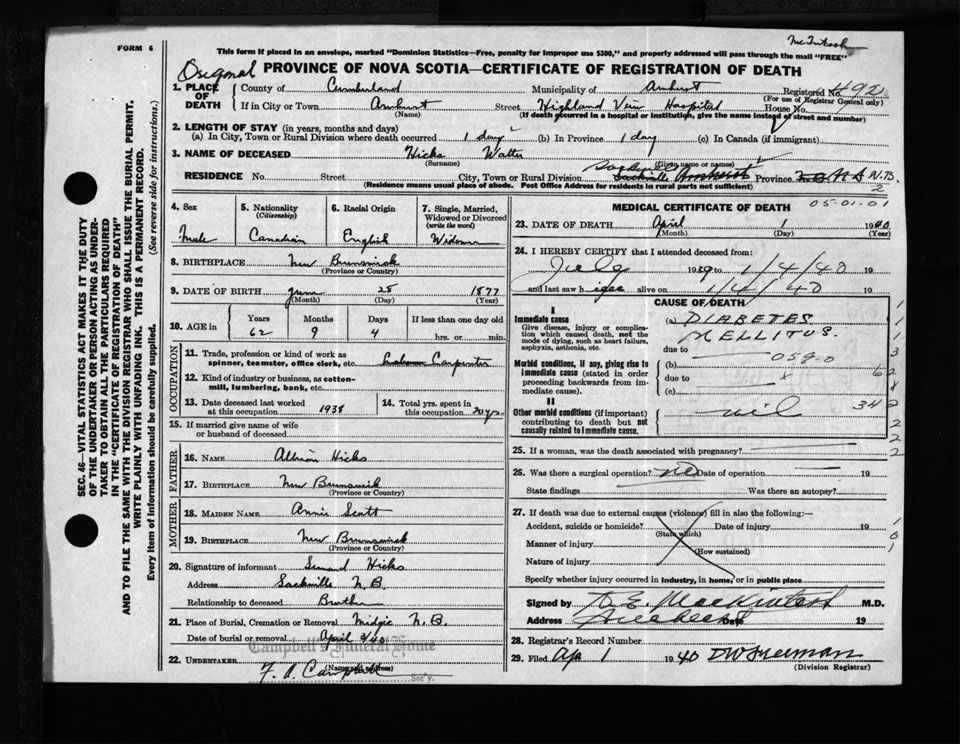 McIntosh
FORM 6
This form if placed in an envelope, marked "Dominion Statistics—Free, penalty for improper use $300," and properly addressed will pass through the mail "FREE"
Original PROVINCE OF NOVA SCOTIA—CERTIFICATE OF REGISTRATION OF DEATH
1. PLACE OF DEATH County of Cumberland Municipality of Amherst Registered No. 492
(For use of Registrar General only)
If in City or Town Amherst Street Highland View Hospital House No.
(Name) (If death occurred in a hospital or institution, give the name instead of street and number)
2. LENGTH OF STAY (in years, months and days)
(a) In City, Town or Rural Division where death occurred 1 day (b) In Province 1 day (c) In Canada (if immigrant)
3. NAME OF DECEASED Hicks Walter
(Surname) (Given name or names)
RESIDENCE No. Street City, Town or Rural Division Sackville Amherst Province N.S N.B.
(Residence means usual place of abode. Post Office Address for residents in rural parts not sufficient)
2
05-01-01
4. Sex Male
5. Nationality (Citizenship) Canadian
6. Racial Origin English
7. Single, Married, Widowed or Divorced (write the word) Widower
8. BIRTHPLACE New Brunswick
(Province or Country)
9. DATE OF BIRTH June 28 1877
(Month) (Day) (Year)
10. AGE in Years 62 Months 9 Days 4 If less than one day old hrs. or min.
OCCUPATION
11. Trade, profession or kind of work as spinner, teamster, office clerk, etc. Carpenter
12. Kind of industry or business, as cotton-mill, lumbering, bank, etc.
13. Date deceased last worked at this occupation 1938
14. Total yrs. spent in this occupation 20 yrs.
15. If married give name of wife or husband of deceased
FATHER
16. NAME Albion Hicks
17. BIRTHPLACE New Brunswick
(Province or Country)
MOTHER
18. MAIDEN NAME Annie Scott
19. BIRTHPLACE New Brunswick
(Province or Country)
20. Signature of informant Hicks
Address Sackville N.B.
Relationship to deceased Brother
21. Place of Burial, Cremation or Removal Midgic N.B.
Date of burial or removal April 3/40
Campbell's Funeral Home
22. UNDERTAKER F. A. Campbell
(Name and address)
Sec'y.
MEDICAL CERTIFICATE OF DEATH
23. DATE OF DEATH April 1 1940
(Month) (Day) (Year)
24. I HEREBY CERTIFY that I attended deceased from
July 1939 to 1/4/40 19
and last saw h alive on 1/4/40 19
CAUSE OF DEATH
I
Immediate cause
Give disease, injury or complication which caused death, not the mode of dying, such as heart failure, asphyxia, asthenia, etc.
(a) DIABETES MELLITUS
due to
Morbid conditions, if any, giving rise to immediate cause (stated in order proceeding backwards from immediate cause).
(b) 059-0
due to
(c)
II
Other morbid conditions (if important) contributing to death but not causally related to immediate cause.
nil
34
25. If a woman, was the death associated with pregnancy?
26. Was there a surgical operation? no Date of operation 19
State findings Was there an autopsy?
27. If death was due to external causes (violence) fill in also the following:—
Accident, suicide or homicide? Date of injury 19
(State which)
Manner of injury
(How sustained)
Nature of injury
Specify whether injury occurred in industry, in home, or in public place
Signed by D. E. MacKintosh M.D.
Address Amherst Date 19
28. Registrar's Record Number
29. Filed Apr 1 1940 DW Freeman
(Division Registrar)
SEC. 46—VITAL STATISTICS ACT MAKES IT THE DUTY
OF THE UNDERTAKER OR PERSON ACTING AS UNDER-
TAKER TO OBTAIN ALL THE PARTICULARS REQUIRED
IN THE "CERTIFICATE OF REGISTRATION OF DEATH" AND TO FILE THE SAME WITH THE DIVISION REGISTRAR WHO SHALL ISSUE THE BURIAL PERMIT.
WRITE PLAINLY WITH UNFADING INK. THIS IS A PERMANENT RECORD.
Every item of information should be carefully supplied. (See reverse side for instructions.)